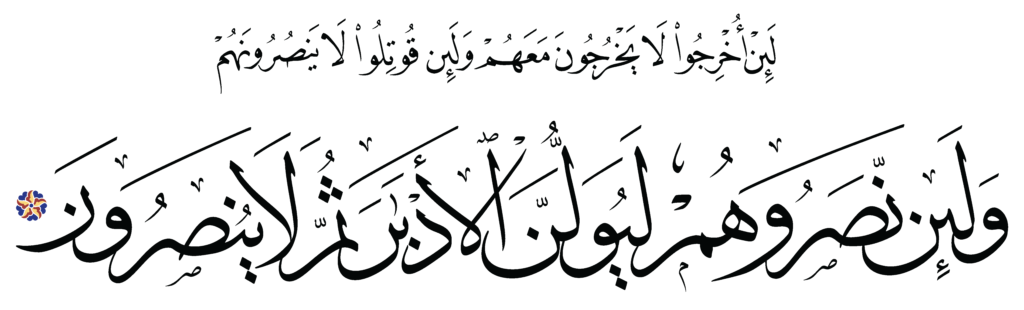 لَئِنْ أُخْرِجُوا۟ لَا يَخْرُجُونَ مَعَهُمْ وَلَئِن قُوتِلُوا۟ لَا يَنصُرُونَهُمْ
وَلَئِن نَّصَرُوهُمْ لَيُوَلُّنَّ ٱلْأَدْبَٰرَ ثُمَّ لَا يُنصَرُونَ